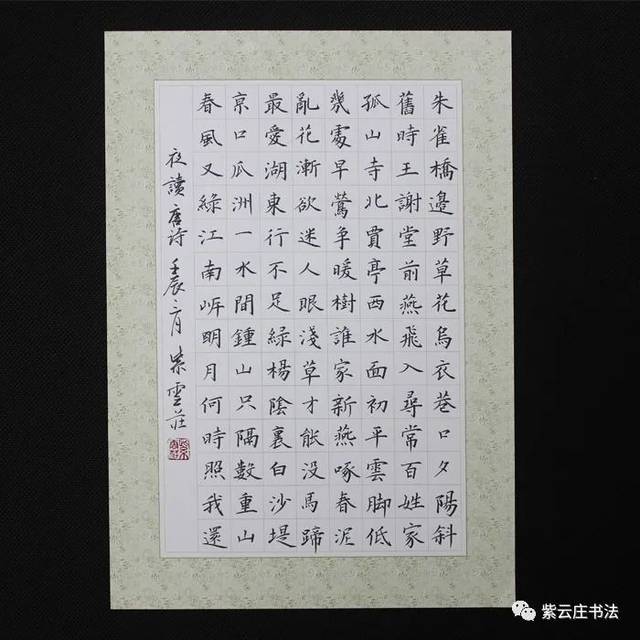 朱雀橋邊野草花烏衣巷口夕陽斜
舊時王謝堂前燕飛入尋常百姓家
孤山寺北賈亭西水面初平雲脚低
幾處早鶯争暖樹誰家新燕啄春泥
亂花漸欲迷人眼淺草才能没馬蹄
最愛湖東行不足綠楊陰裏白沙堤
京口瓜洲一水間鍾山只隔數重山
春風又綠江南岸明月何時照我還
夜讀唐詩 壬辰 月 紫雲莊
紫云庄书法